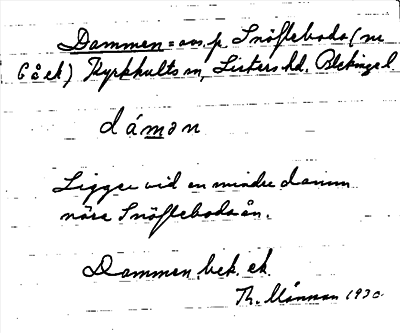 Dammen = avs. p. Snöfleboda (nr
6 å ek) Kyrkhults sn, Listers hd. Blekinge l
dámən
Ligger vid en mindre damm
nära Snöflebodaån.
Dammen bek. ek.
Th. Månsson 1930